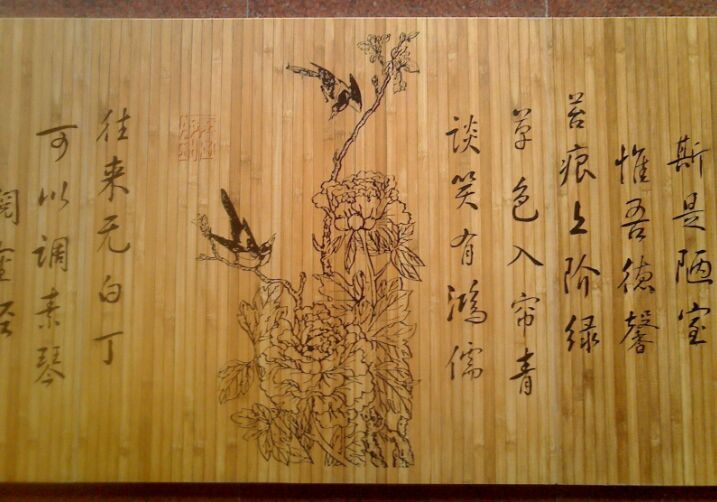 斯是陋室
惟吾德馨
苔痕上阶绿
草色入帘青
谈笑有鸿儒
往来无白丁
可以调素琴
阅金经